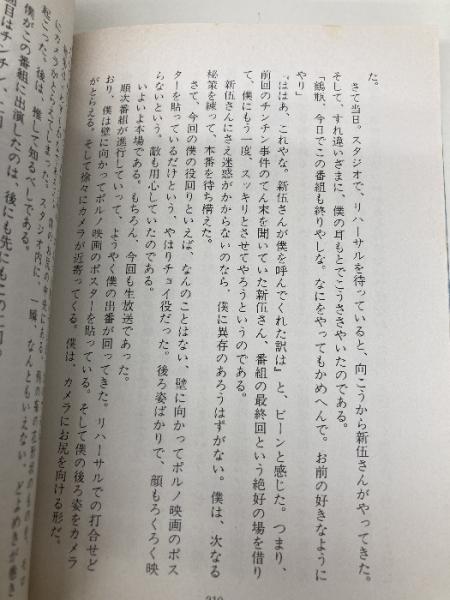 た。
さて当日。スタジオで、リハーサルを待っていると、向こうから新伍さんがやってきた。
そして、すれ違いざまに、僕の耳もとでこうささやいたのである。
「鶴瓶、今日でこの番組も終りやしな。なにをやってもかめへんで。お前の好きなように
やり」
『ははあ、これやな。新伍さんが僕を呼んでくれた訳は』と、ピーンと感じた。つまり、
前回のチンチン事件のてん末を聞いていた新伍さん、番組の最終回という絶好の場を借り
て、僕にもう一度、スッキリとさせてやろうというのである。
新伍さんにさえ迷惑がかからないのなら、僕に異存のあろうはずがない。僕は、次なる
秘策を練って、本番を待ち構えた。
さて、今回の僕の役回りといえば、なんのことはない、壁に向かってポルノ映画のポス
ターを貼っているだけという、やはりチョイ役だった。後ろ姿ばかりで、顔もろくろく映
らないという。敵も用心していたのである。
いよいよ本場である。もちろん、今回も生放送であった。
順次番組が進行していって、ようやく僕の出番が回ってきた。リハーサルでの打合せど
おり、僕は壁に向かってポルノ映画のポスターを貼っている。そして僕の後ろ姿をカメラ
がとらえる。そして徐々にカメラが近寄ってくる。僕は、カメラにお尻を向ける形だ。
起こった。後は、推して知るべしである。
僕がこの番組に出演したのは、後にも先にもこの二回
210